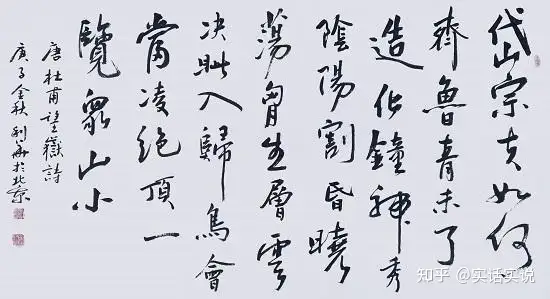 岱宗夫如何
齊魯青未了
造化鐘神秀
陰陽割昏曉
蕩胷生層雲
決眦入歸鳥會
當凌絕頂一
覽衆山小
唐杜甫望嶽詩
庚子金秋利華於北京
知乎 @实话实说